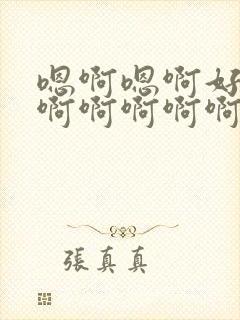 嗯啊嗯啊好
啊啊啊啊啊
張真真